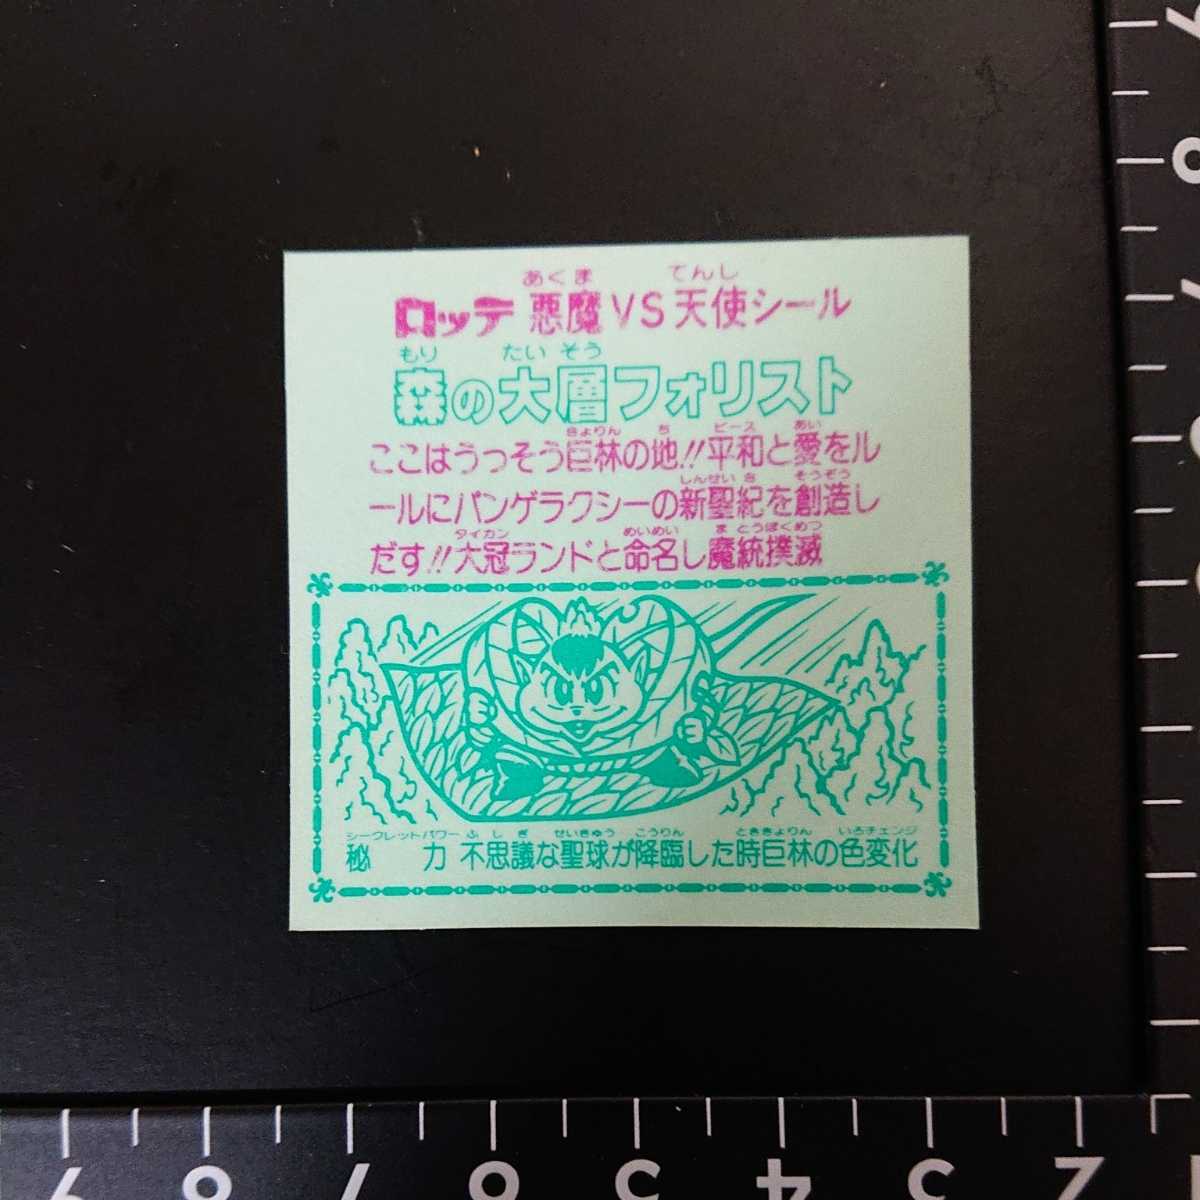 あくま てんし
ロッテ 悪魔VS天使シール
もり たい そう
森の大層フォリスト
きょりん ち ピース あい
ここはうっそう巨林の地!!平和と愛をル
しんせい き そうぞう
ールにパンゲラクシーの新聖紀を創造し
タイカン めいめい ま とうぼくめつ
だす!!大冠ランドと命名し魔統撲滅
シークレットパワー ふしぎ せいきゅう こうりん とききょりん いろチェンジ
秘 力 不思議な聖球が降臨した時巨林の色変化
9 8 7 6 5 4 3 2